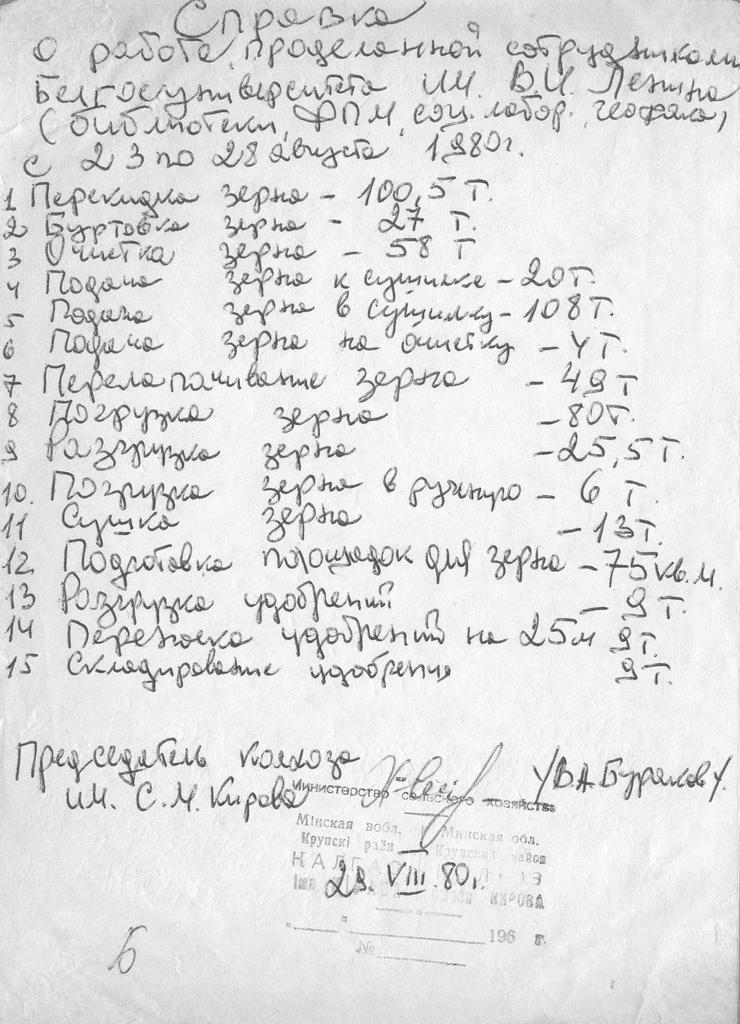 Справка
о работе, проделанной сотрудниками
Белгосуниверситета им. В.И. Ленина
(библиотеки, ФПМ, соц. лабор., геофака)
с 23 по 28 августа 1980г.
1 Перекидка зерна – 100,5 т.
2 Буртовка зерна – 27 т.
3 Очистка зерна – 58 т
4 Подача зерна к сушилке – 20 т.
5 Подача зерна в сушилку – 108 т.
6 Подача зерна на очистку – 4 т.
7 Перелапачивание зерна – 49 т
8 Погрузка зерна – 80 т.
9 Разгрузка зерна – 25,5 т.
10. Погрузка зерна в ручную – 6 т.
11 Сушка зерна – 13 т.
12. Подготовка площадок для зерна – 75 кв.м.
13 Разгрузка удобрений – 9 т.
14 Переноска удобрений на 25м 9т.
15 Складирование удобрения 9 т.
Председатель колхоза /В.А. Бураков/.
им. С.М. Кирова
Министерство сельского хозяйства
Мінская вобл. Минская обл.
Крупскі раён Крупский район
КИРОВА
29. VIII .80г.
196 г.
№
Б